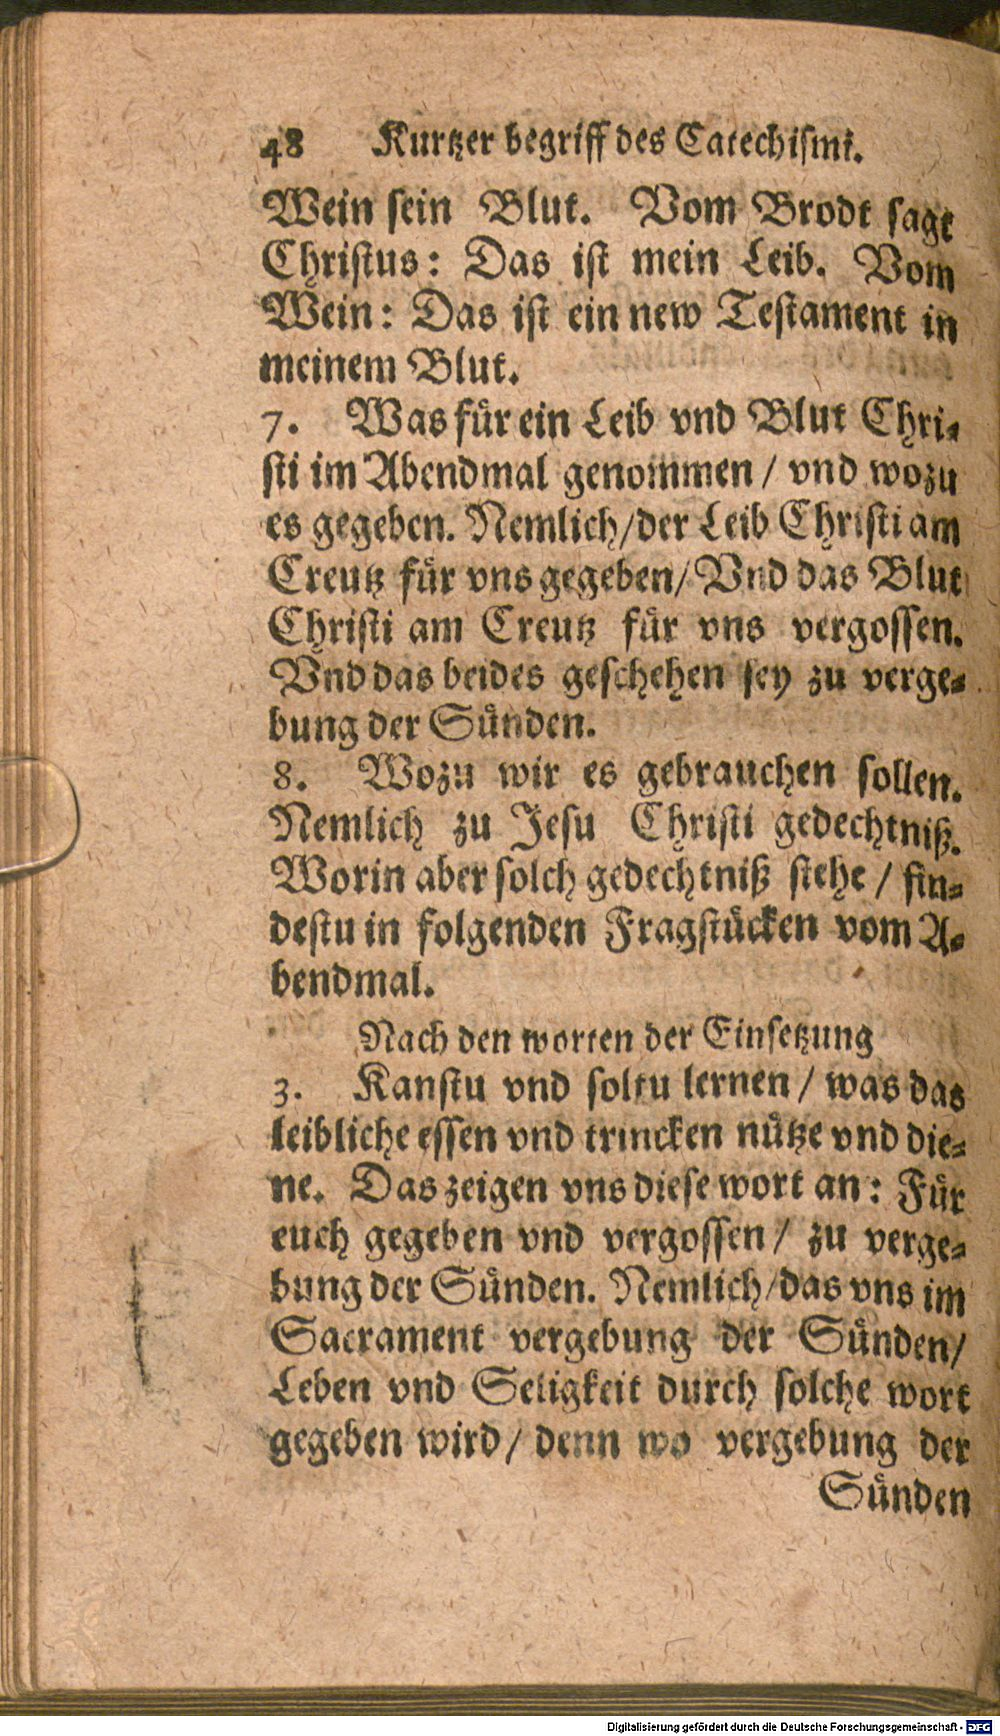 48 Kurtzer begriff des Catechismi.
Wein sein Blut. Vom Brodt sagt
Christus: Das ist mein Leib. Vom
Wein: Das ist ein new Testament in
meinem Blut.
7. Was für ein Leib vnd Blut Chri-
sti im Abendmal genommen / vnd wozu
es gegeben. Nemlich/der Leib Christi am
Creutz für vns gegeben/ Vnd das Blut
Christi am Creutz für vns vergossen.
Vnd das beides geschehen sey zu verge-
bung der Sünden.
8. Wozu wir es gebrauchen sollen.
Nemlich zu Jesu Christi gedechtniß.
Worin aber solch gedechtniß stehe / fin-
destu in folgenden Fragstücken vom A-
bendmal.
Nach den worten der Einsetzung
3. Kanstu vnd soltu lernen / was das
leibliche essen vnd trincken nütze vnd die-
ne. Das zeigen vns diese wort an: Für
euch gegeben vnd vergossen / zu verge-
bung der Sünden. Nemlich/das vns im
Sacrament vergebung der Sünden/
Leben vnd Seligkeit durch solche wort
gegeben wird/ denn wo vergebung der
Sünden
Digitalisierung gefördert durch die Deutsche Forschungsgemeinschaft - DFG